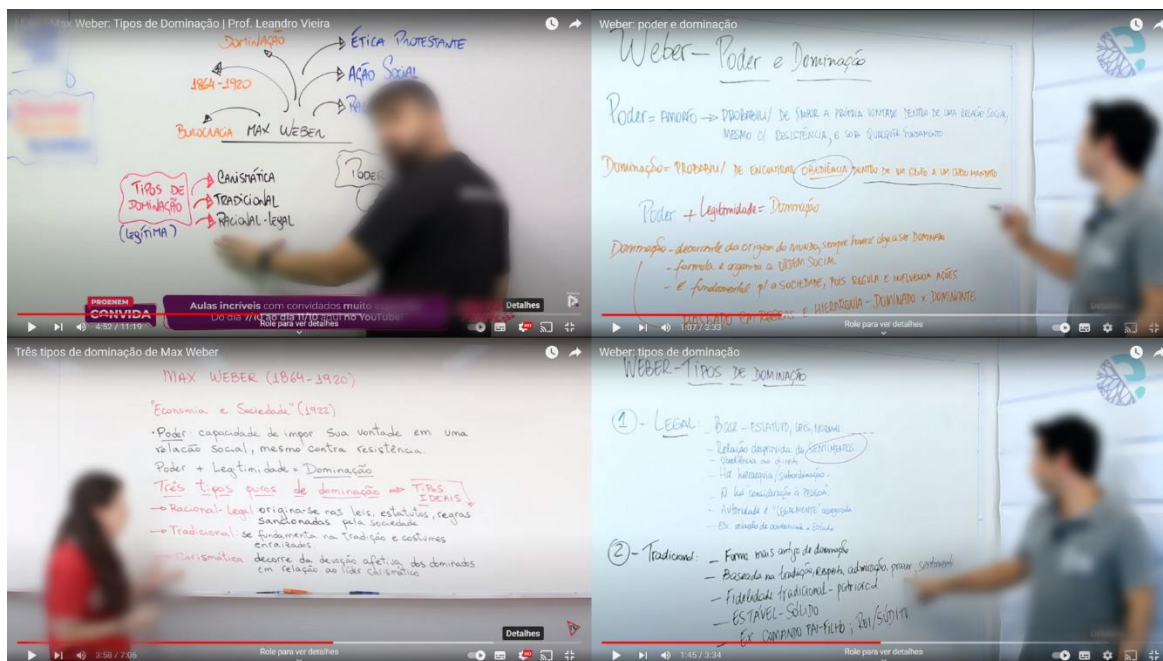 Max Weber: Tipos de Dominação | Prof. Leandro Vieira
DOMINAÇÃO
ÉTICA PROTESTANTE
1864-1920
AÇÃO SOCIAL
BUROCRACIA MAX WEBER
TIPOS DE DOMINAÇÃO
(LEGÍTIMA)
CARISMÁTICA
TRADICIONAL
RACIONAL-LEGAL
PODER
PROENEM
CONVIDA
Aulas incríveis com convidados muito
Do dia 7/10 ao dia 11/10 aqui no YouTube!
Detalhes
4:52 / 11:19
Role para ver detalhes
Weber: poder e dominação
Weber - Poder e Dominação
Poder = AMORFO → PROBABILI/ DE IMPOR A PRÓPRIA VONTADE DENTRO DE UMA RELAÇÃO SOCIAL,
MESMO C/ RESISTÊNCIA, E SOB QUALQUER FUNDAMENTO.
Dominação = PROBABILI/ DE ENCONTRAR OBEDIÊNCIA DENTRO DE UM GRUPO A UM CERTO MANDATO
Poder + Legitimidade = Dominação
Dominação - decorrente da origem do MUNDO, sempre haver algo a ser DOMINADO
- formula e organiza a ORDEM SOCIAL
- é fundamental p/ a SOCIEDADE, POIS REGULA E INFLUENCIA AÇÕES
BASEADO EM REGRAS E HIERARQUIA - DOMINADO x DOMINANTE
1:07 / 3:33
Role para ver detalhes
Três tipos de dominação de Max Weber
MAX WEBER (1864-1920)
"Economia e Sociedade" (1922)
• Poder: capacidade de impor sua vontade em uma
relação social, mesmo contra resistência.
Poder + Legitimidade = Dominação
Três tipos puros de dominação ⇒ TIPOS
IDEAIS
→ Racional-Legal: origina-se nas leis, estatutos, regras
sancionadas pela sociedade
→ Tradicional: se fundamenta na tradição e costumes
enraizados.
→ Carismática decorre da devoção afetiva dos dominados
em relação ao líder carismático
Detalhes
3:58 / 7:05
Role para ver detalhes
Weber: tipos de dominação
WEBER - TIPOS DE DOMINAÇÃO
1 - LEGAL: - BASE - ESTATUTO, LEIS, NORMAS
- Relação desprovida de SENTIMENTOS
- Há hierarquia/subordinação
- Ñ há consideração à PESSOA
- Autoridade é "LEGALMENTE" assegurada
2 - Tradicional: - Forma mais antiga de dominação
- Baseada na tradição, respeito, admiração, prazer,
- Fidelidade tradicional - patriarcal
- ESTÁVEL - SÓLIDO
- EX COMANDO PAI-FILHO; REI/SÚDITO
1:45 / 3:34
Role para ver detalhes